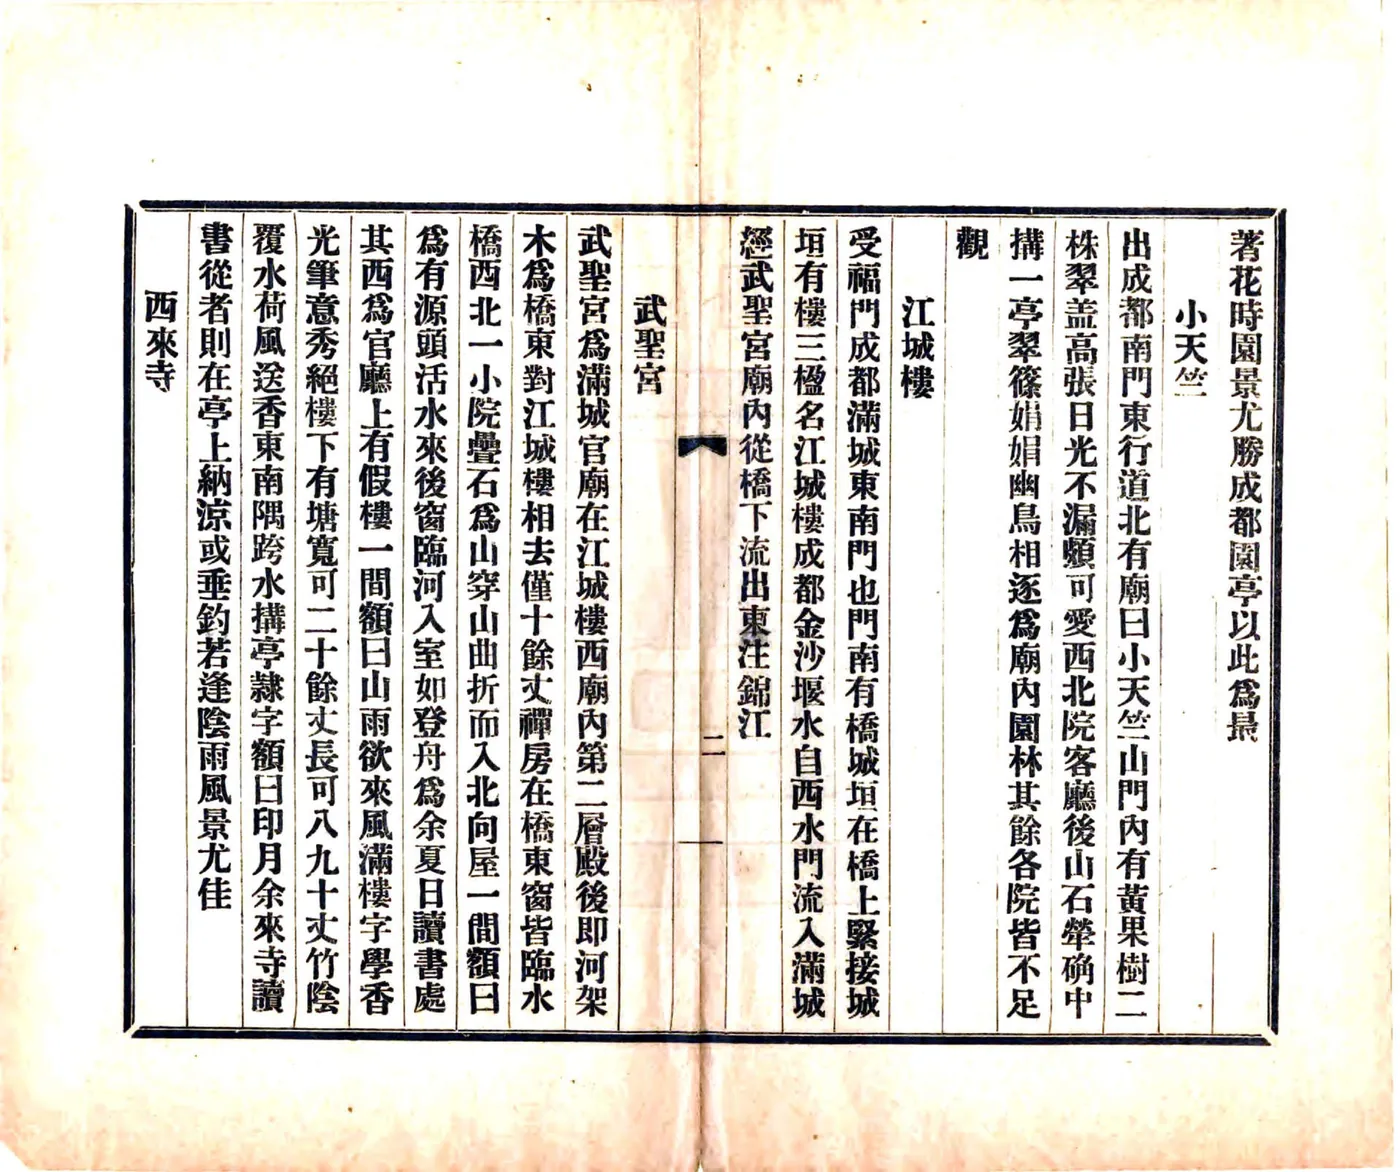 著花時園景尤勝成都園亭以此為最
小天竺
出成都南門東行道北有廟曰小天竺山門內有黃果樹二
株翠盖高張日光不漏頗可愛西北院客廳後山石犖确中
搆一亭翠篠娟娟幽鳥相逐為廟內園林其餘各院皆不足
觀
江城樓
受福門成都滿城東南門也門南有橋城垣在橋上緊接城
垣有樓三楹名江城樓成都金沙堰水自西水門流入滿城
經武聖宮廟內從橋下流出東注錦江
二
武聖宮
武聖宮為滿城官廟在江城樓西廟內第二層殿後即河架
木為橋東對江城樓相去僅十餘丈禪房在橋東窗皆臨水
橋西北一小院疊石為山穿山曲折而入北向屋一間額曰
為有源頭活水來後窗臨河入室如登舟為余夏日讀書處
其西為官廳上有假樓一間額曰山雨欲來風滿樓字學香
光筆意秀絕樓下有塘寬可二十餘丈長可八九十丈竹陰
覆水荷風送香東南隅跨水搆亭隸字額曰印月余來寺讀
書從者則在亭上納涼或垂釣若逢陰雨風景尤佳
西來寺